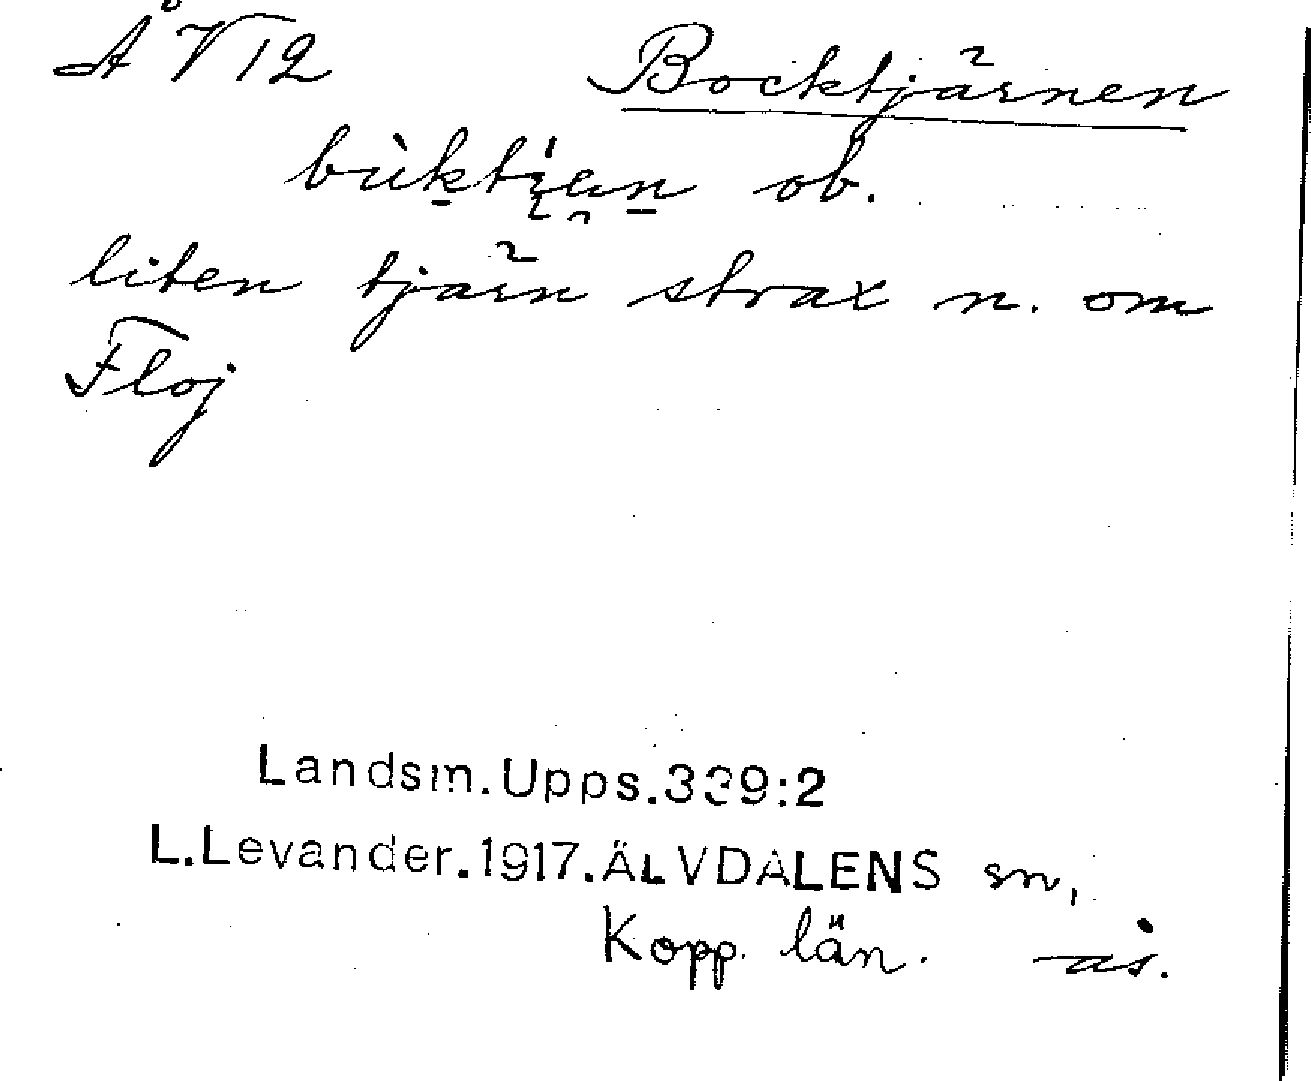 Å V 12 Bocktjärnen
bùktjen ob.
liten tjärn strax n. om
Floj
Landsm.Upps.339:2
L.Levander.1917.ÄLVDALENS sn,
Kopp. län. ås.